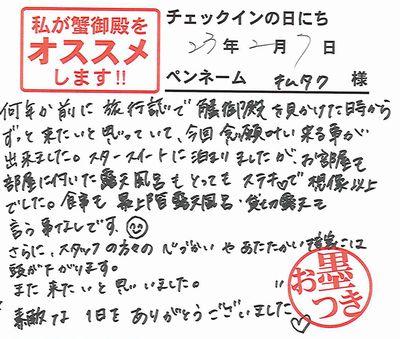 私が蟹御殿を
オススメ
します!!
チェックインの日にち
23年2月7日
ペンネーム キムタク 様
何年か前に旅行誌で蟹御殿を見かけた時から
ずっと来たいと思っていて、今回念願叶い来る事が
出来ました。スタースイートに泊まりましたが、お部屋も
部屋に付いた露天風呂もとってもステキ♡で想像以上
でした。食事も最上階露天風呂・貸切露天も
言う事なしです。
さらに、スタッフの方々の心づかいやあたたかい接客には
頭が下がります。
また来たいと思いました。
素敵な1日をありがとうございました♡
お墨つき